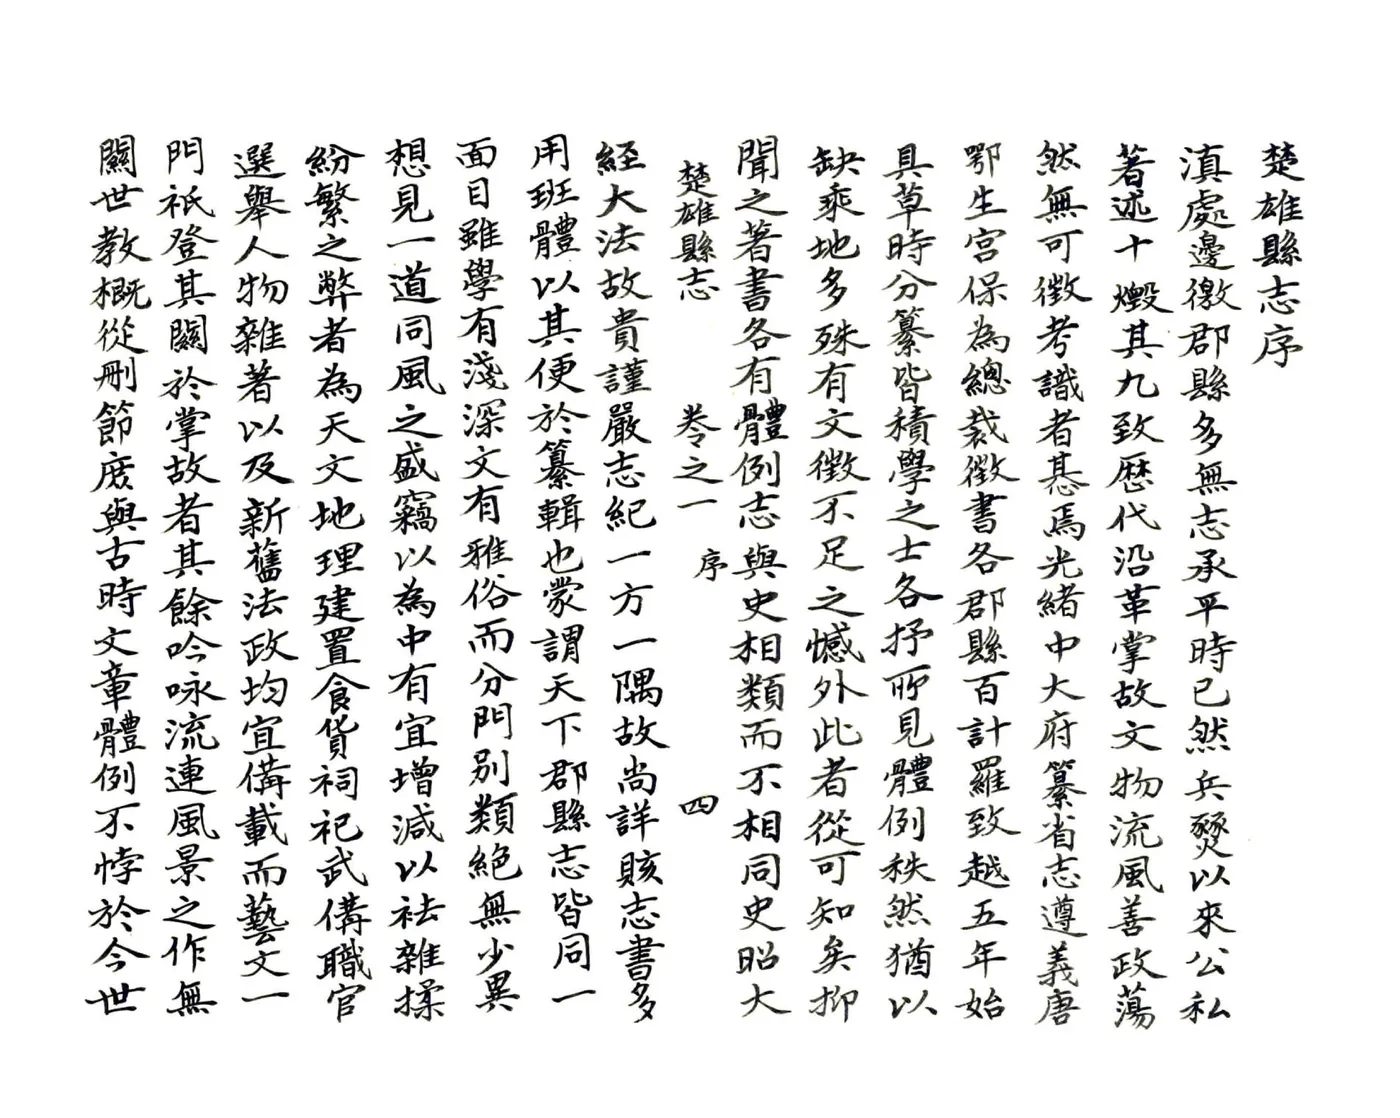 楚雄縣志序
滇處邊徼郡縣多無志承平時已然兵燹以來公私
著述十燬其九致歷代沿革掌故文物流風善政蕩
然無可徵考識者惎焉光緒中大府纂省志遵義唐
鄂生宮保為總裁徵書各郡縣百計羅致越五年始
具草時分纂皆積學之士各抒所見體例秩然猶以
缺乘地多殊有文徵不足之憾外此者從可知矣抑
聞之著書各有體例志與史相類而不相同史昭大
楚雄縣志 卷之一 序 四
經大法故貴謹嚴志紀一方一隅故尚詳賅志書多
用班體以其便於纂輯也蒙謂天下郡縣志皆同一
面目雖學有淺深文有雅俗而分門別類絕無少異
想見一道同風之盛竊以為中有宜增減以袪雜揉
紛繁之弊者為天文地理建置食貨祠祀武備職官
選舉人物雜著以及新舊法政均宜備載而藝文一
門祇登其關於掌故者其餘吟咏流連風景之作無
關世教概從刪節庶與古時文章體例不悖於今世